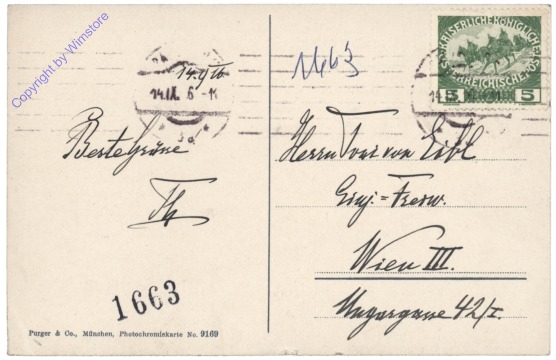 Copyright by Wimstore
14.9.16
14.IX. 6-11
1463
KAISERLICHE KÖNIGLICHE
ÖSTERREICHISCHE POST
5 5
Beste Grüße
Th
1663
Purger & Co., München, Photochromiekarte No. 9169
Herrn Toni von
Einj.=Freiw.
Wien III.
Ungargasse 42/I.